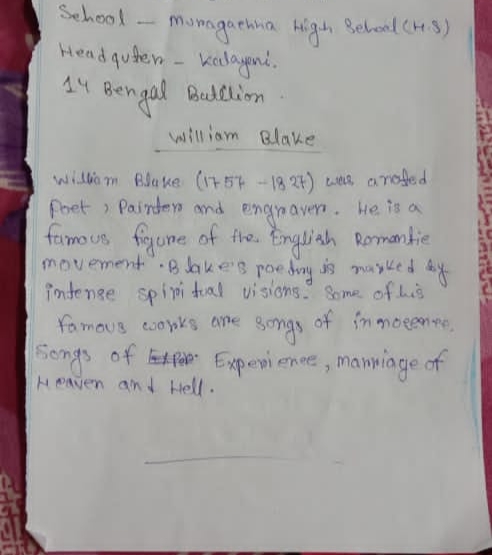 School - Muragachha High School (H.S)
Headquter - Kalayani.
14 Bengal Battlion.
William Blake
William Blake (1757 - 1827) was a noted
poet, Painter and engraver. He is a
famous figure of the English Romantic
movement. Blake's poetry is marked by
intense spiritual visions. Some of his
famous works are songs of innocenne.
Songs of Experience, marriage of
Heaven and Hell.